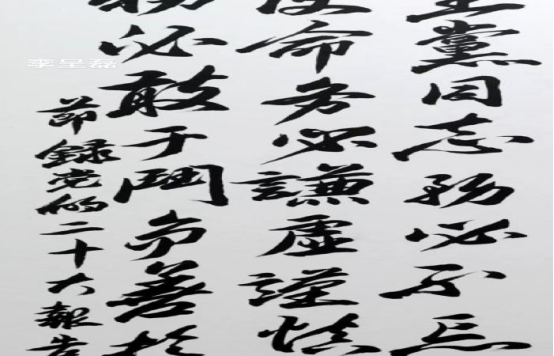 全黨同志務必不忘
使命务必謙虛謹慎
務必敢于鬥争善於
節録党的二十大報告
李呈磊